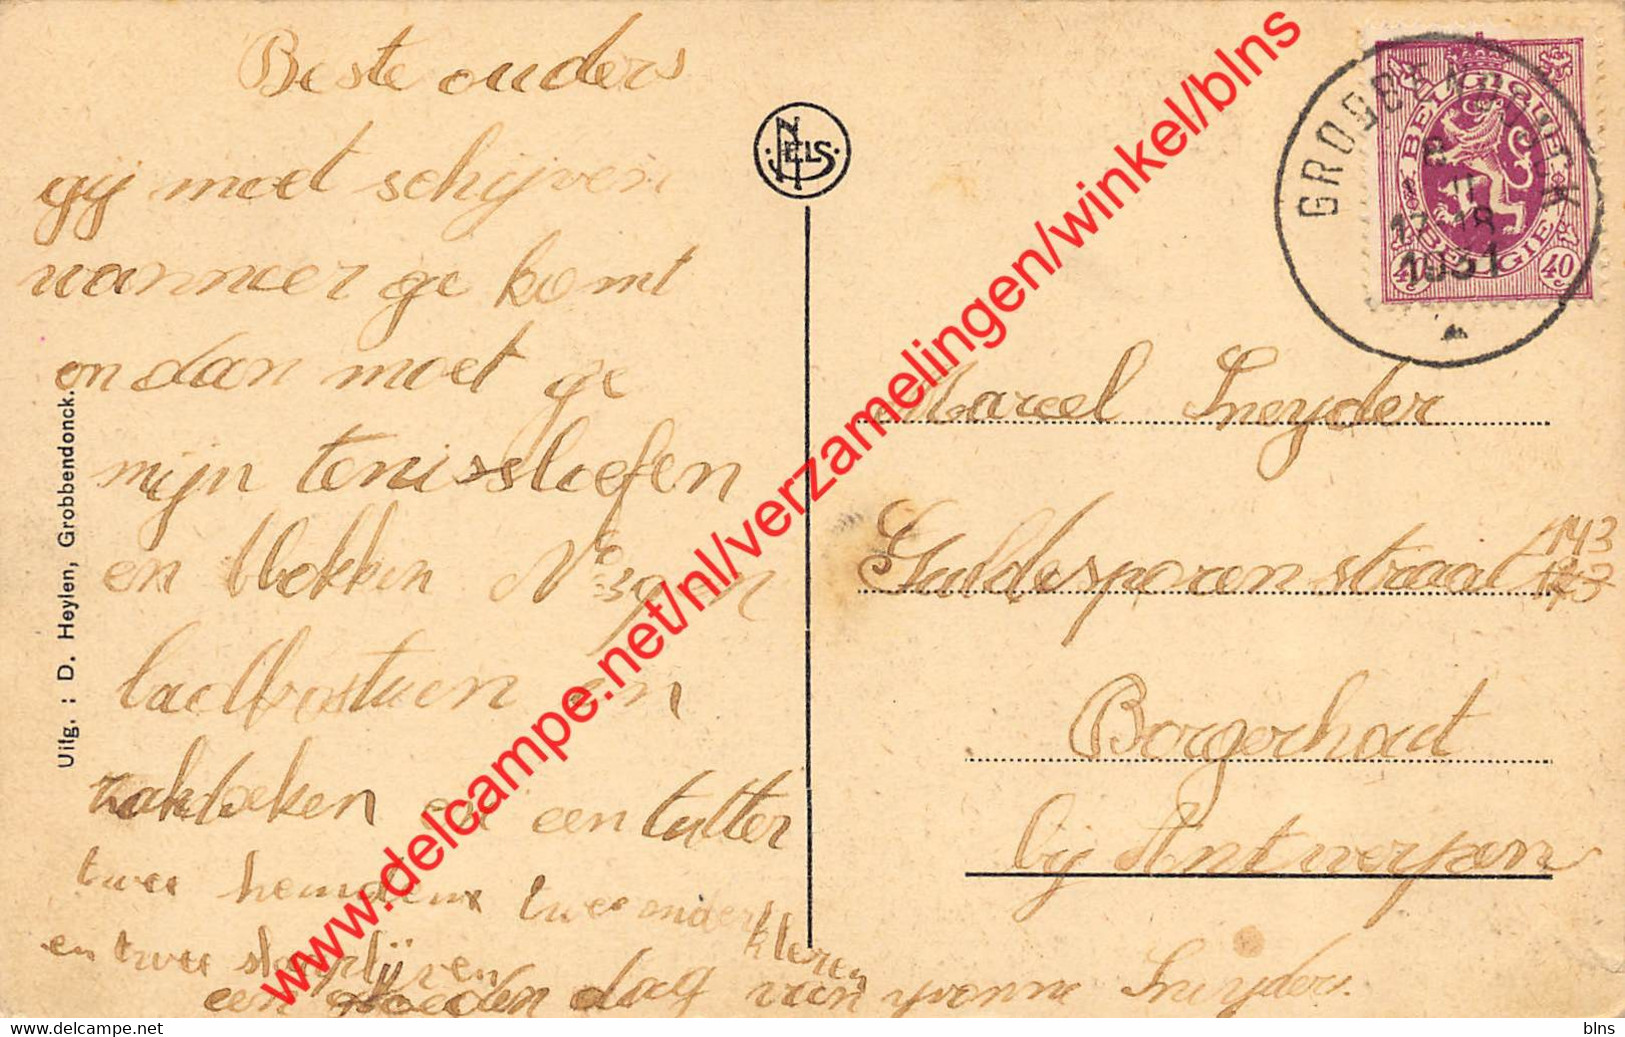 Beste ouders
gij moet schijven
wanneer ge komt
en dan moet ge
mijn tenissloefen
en blokken No 39 en
badkostuen en
zakdoeken en een tutter
twee hemden twee onder
kleren
en twee slaaplijven
een goeden dag van yvonne Sneyders.
Uitg. : D. Heylen, Grobbendonck.
NELS
GROBBENDONCK
8 II
17-18
1931
BELGIQUE
BELGIE
40 40
Marcel Sneyder
Guldesporenstraat 143
Borgerhout
bij Antwerpen
www.delcampe.net/nl/verzamelingen/winkel/blns
delcampe.net
blns